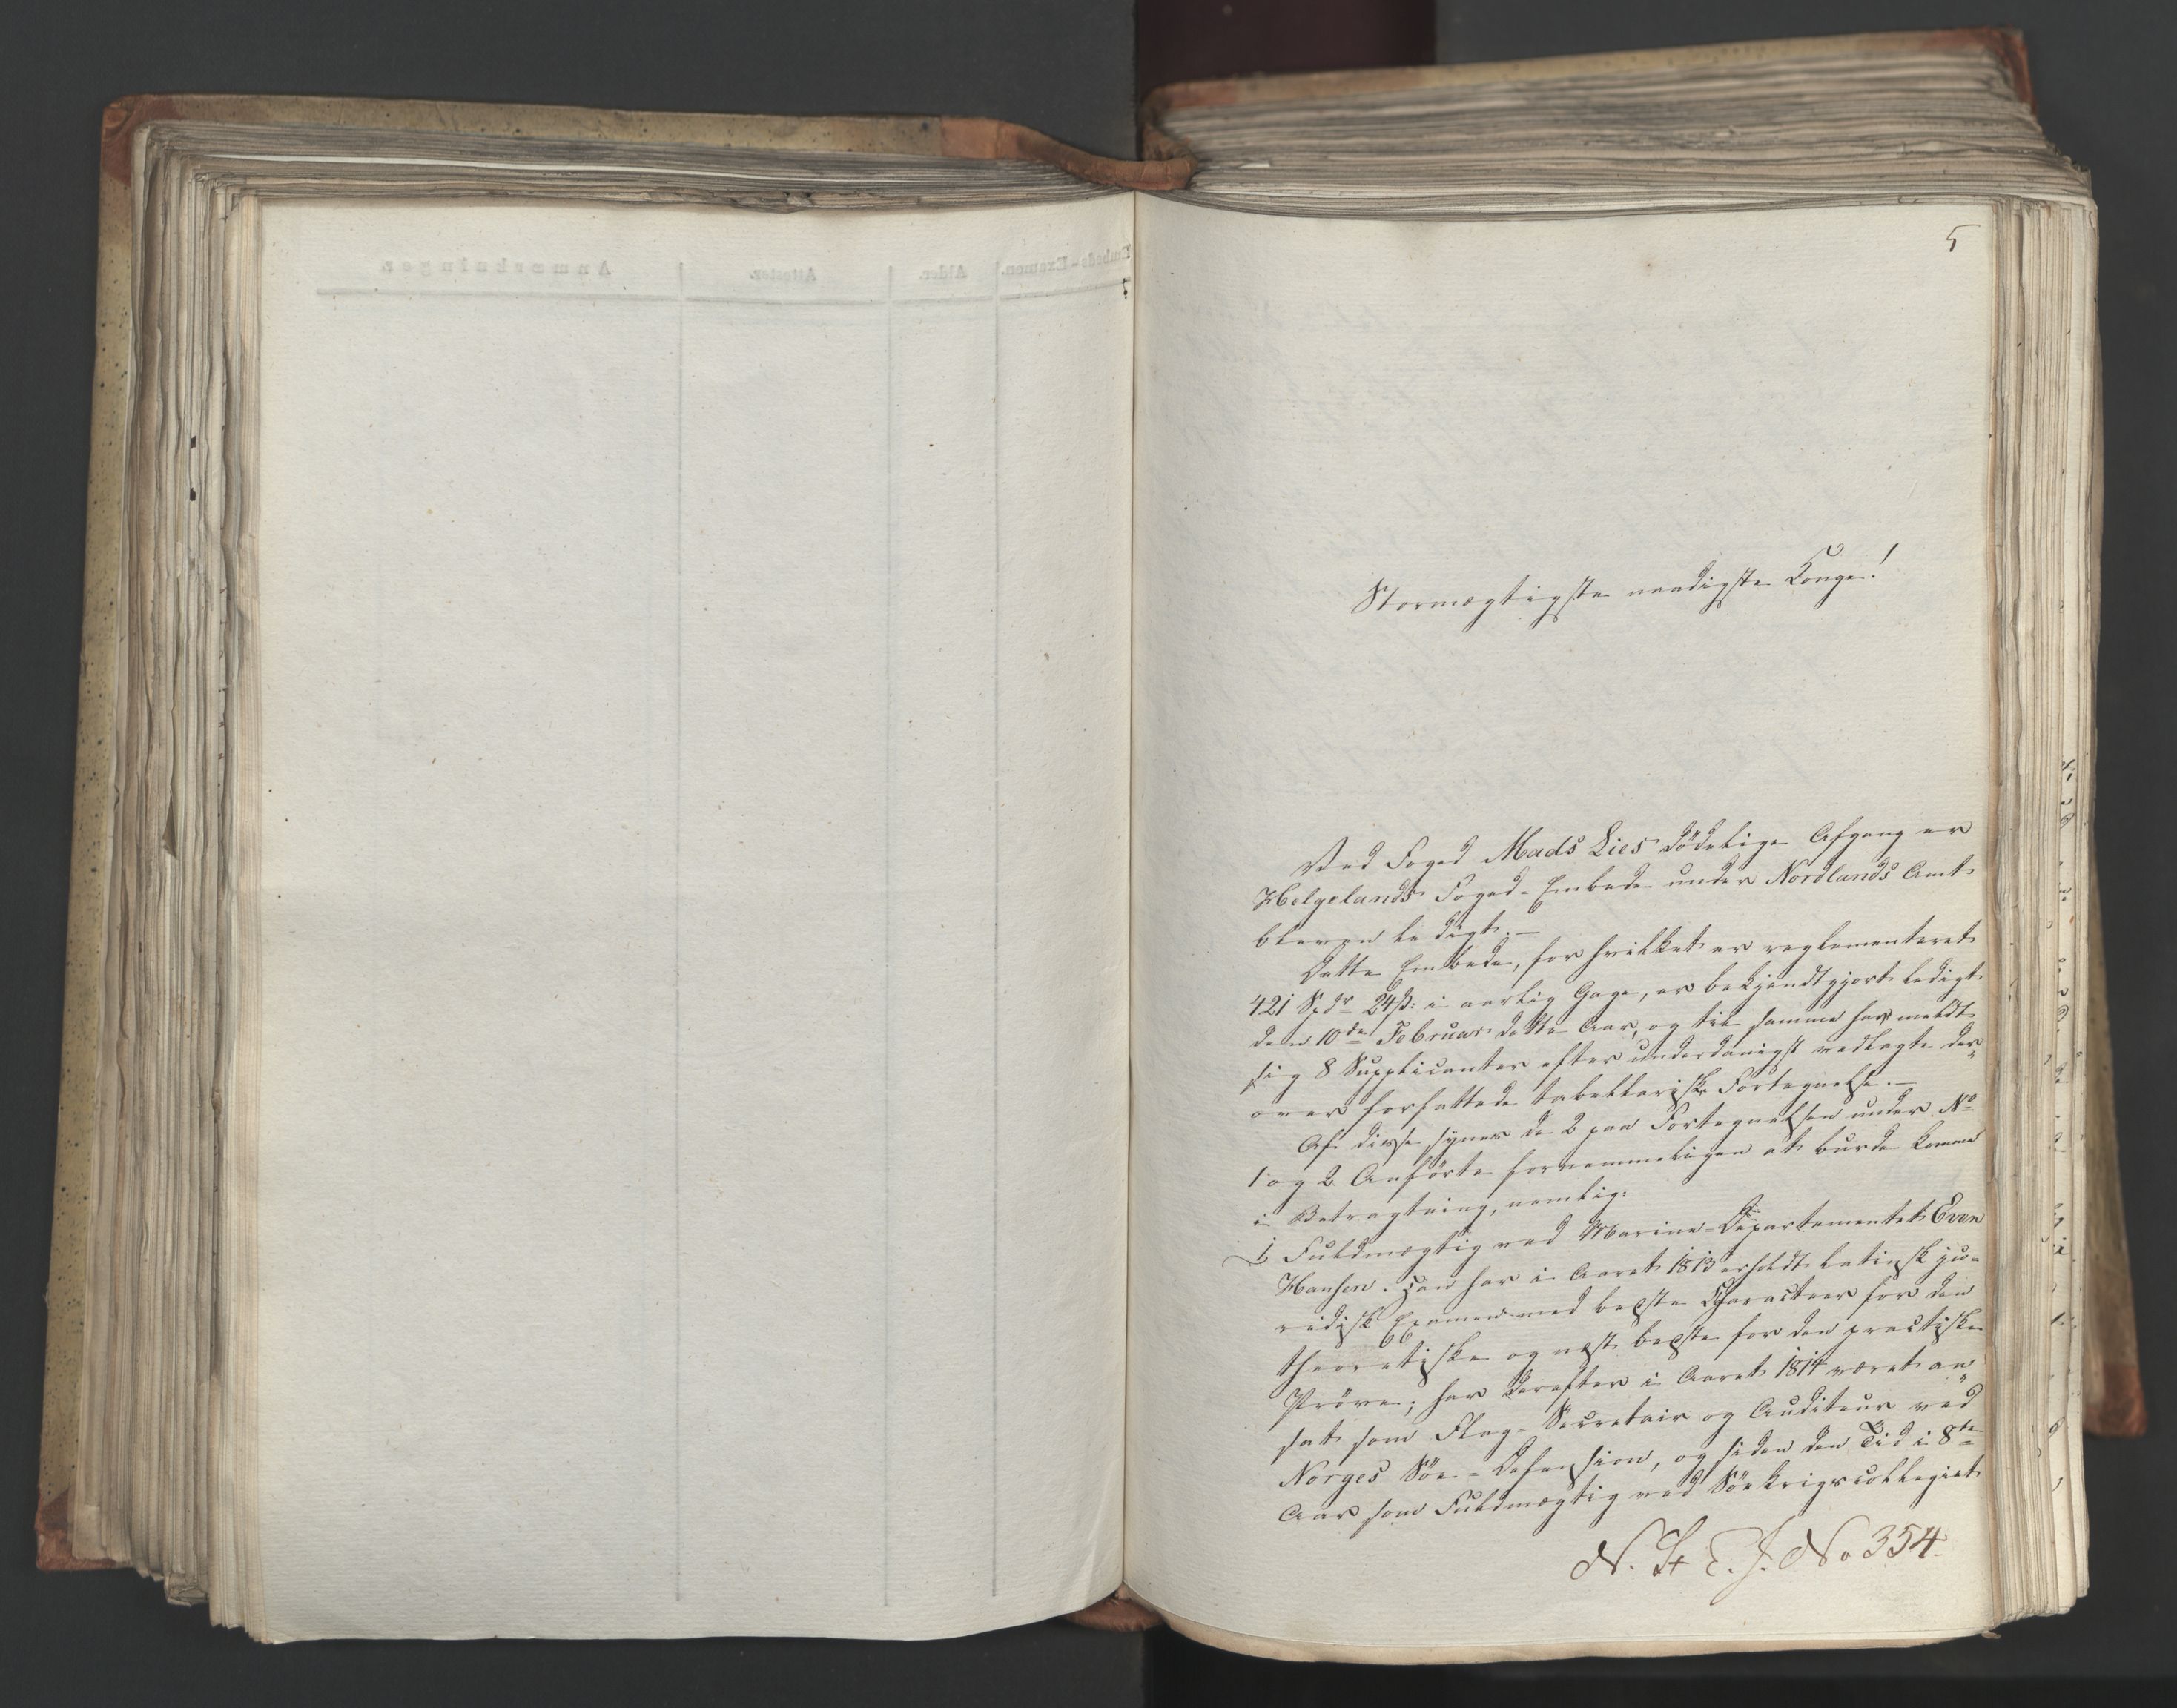 5
Stormægtigste naadigste Konge!
Ved Foged Mads Lies dödelige Afgang er
Helgelands Foged-Embede under Nordlands Amt
bleven ledigt.—
Dette Embede, for hvilket er reglementeret
421 Spdr 24 ß: i aarlig Gage, er bekjendtgjort ledigt
den 10de Februar dette Aar, og til samme har meldt
sig 8 Supplicanter efter underdanigst vedlagte der„
over forfattede tabellariske Fortegnelse.—
Af disse synes de 2 paa Fortegnelsen under No
1 og 2 Anförte fornemmeligen at burde komme
i Betragtning, nemlig:
1, Fuldmægtig ved Marine-Departementet Even
Hansen. Han har i Aaret 1813 erholdt latinsk ju-
ridisk Examen med bedste Characteer for den
theoretiske og næst bedste for den practiske
Pröve; har derefter i Aaret 1814 været an„
sat som Flag-Secretair og Auditeur ved
Norges Söe-Defension, og siden den Tid i 8te
Aar som Fuldmægtig ved Söekrigscollegiet
N. St. E. J. No 354.